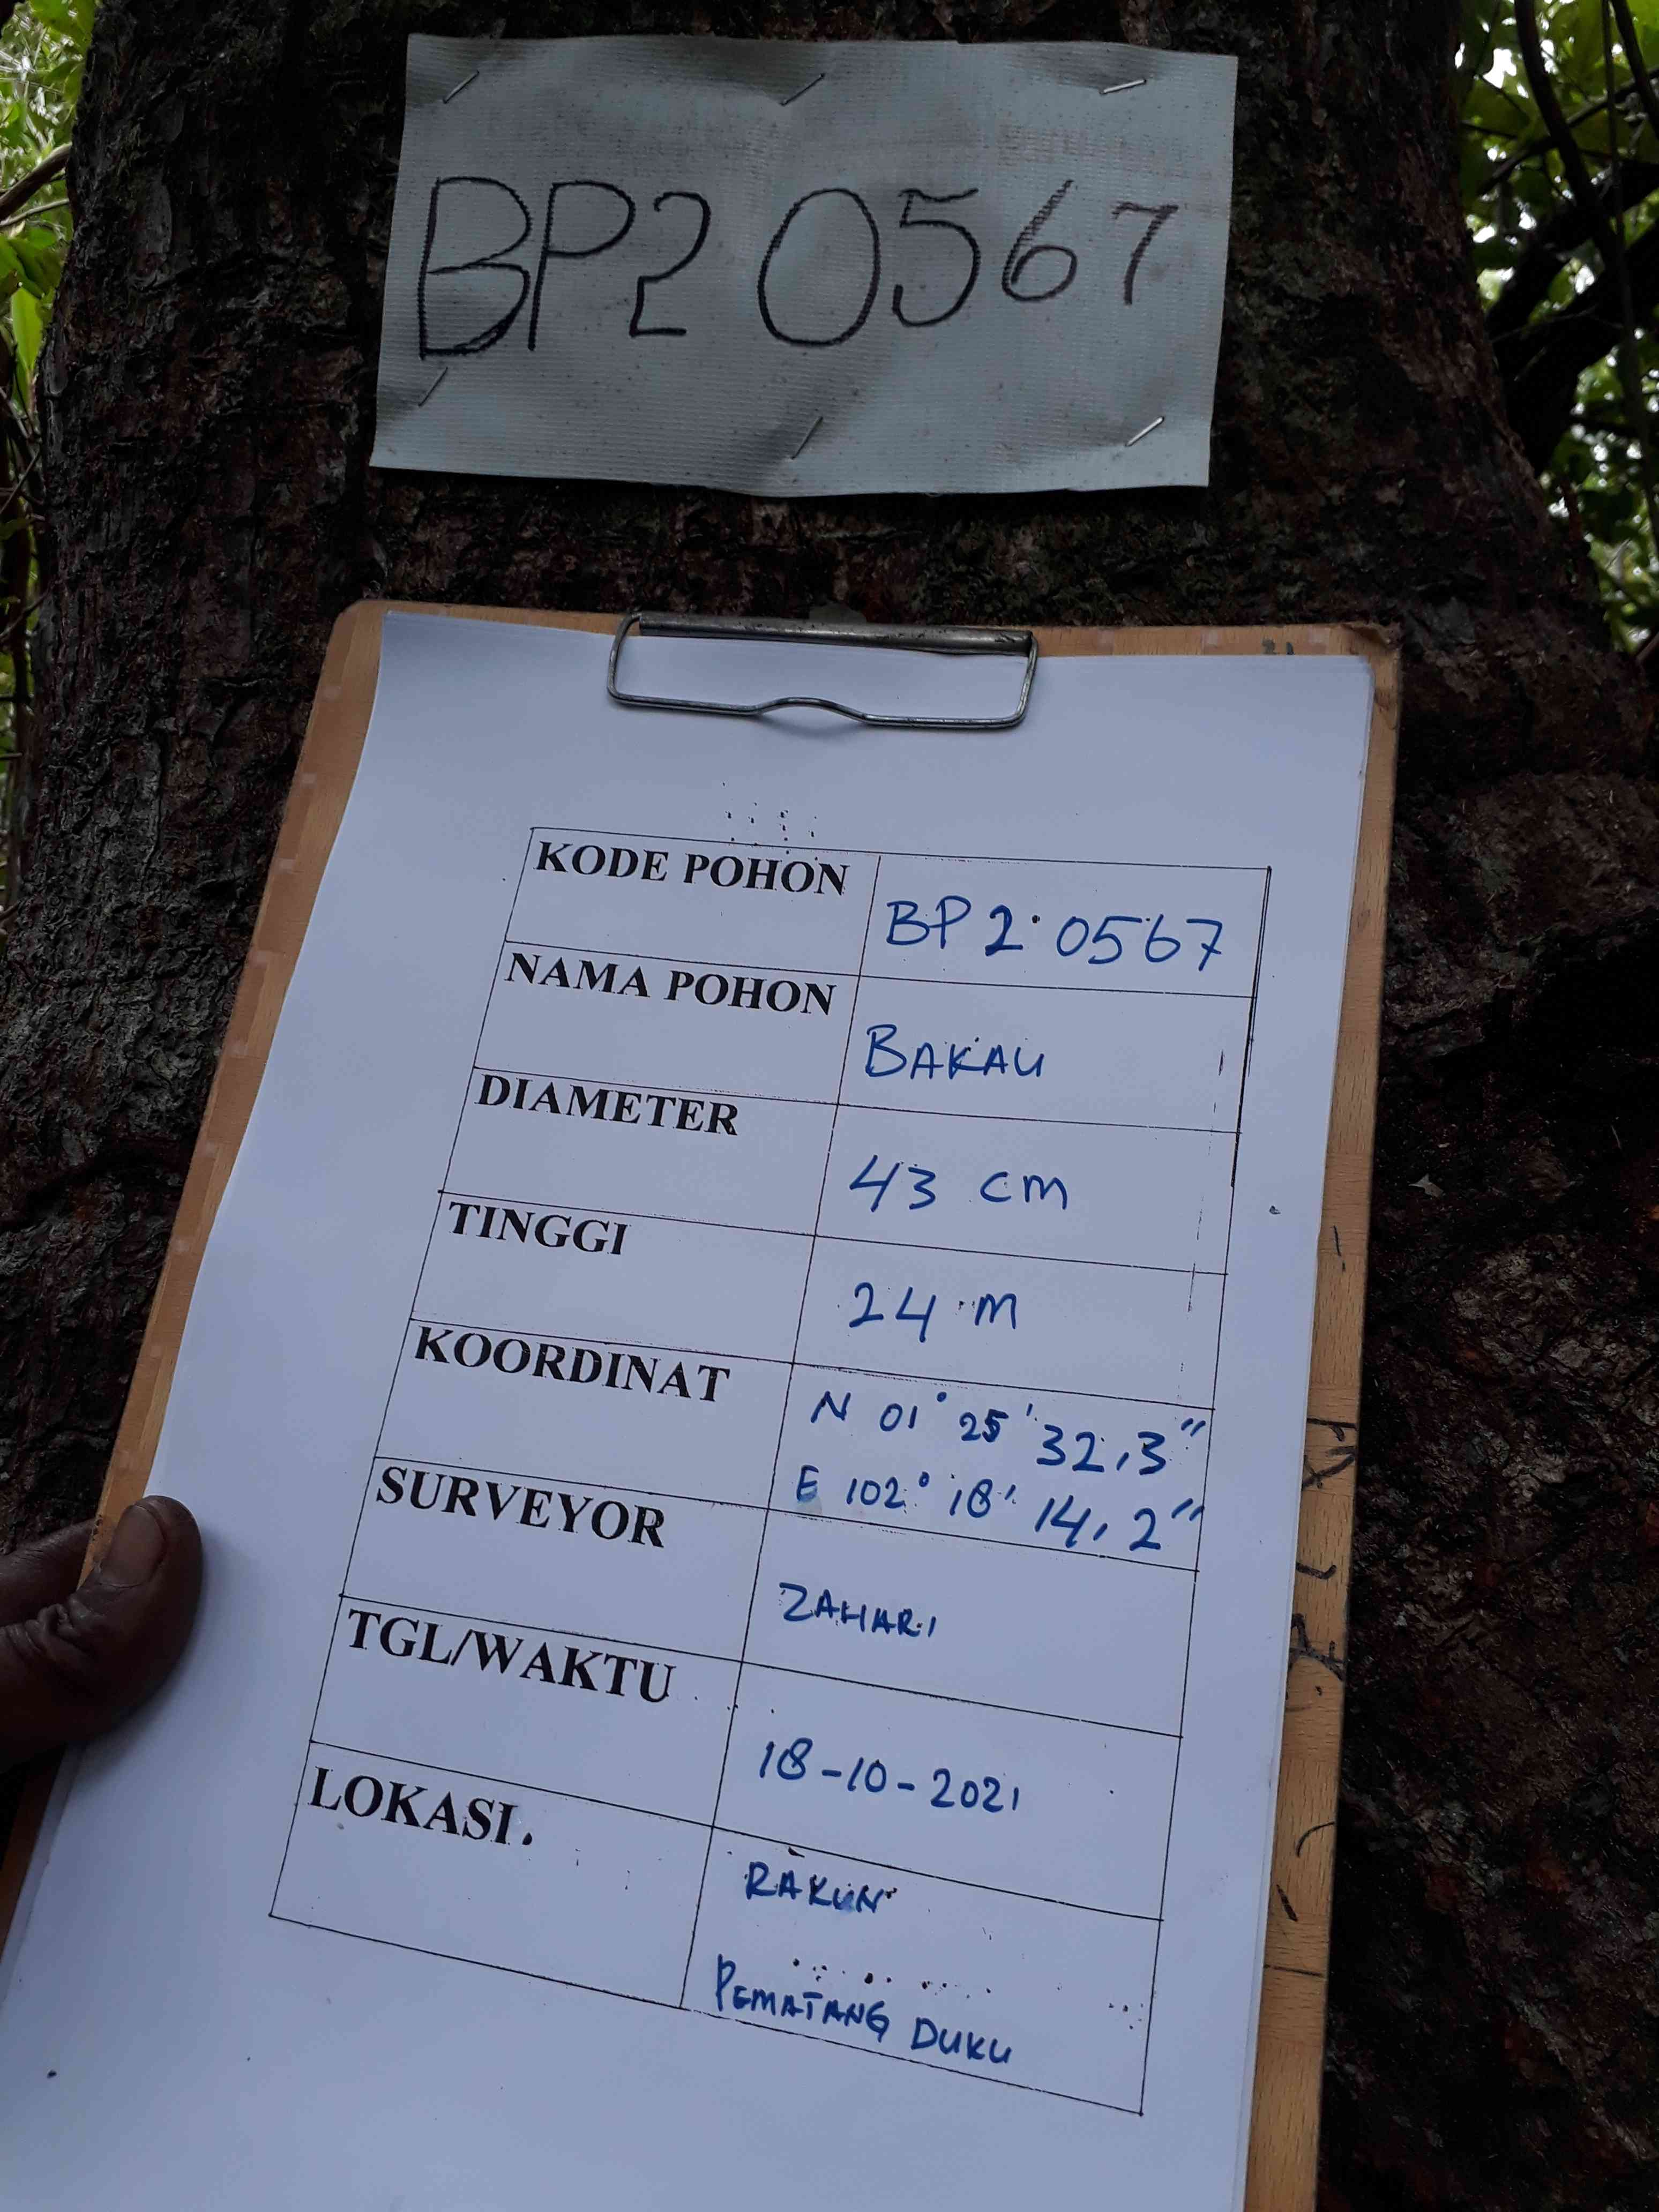 BP2 0567
KODE POHON
BP 2 0567
NAMA POHON
BAKAU
DIAMETER
43 cm
TINGGI
24 m
KOORDINAT
N 01° 25' 32,3"
E 102° 18' 14,2"
SURVEYOR
ZAHARI
TGL/WAKTU
18-10-2021
LOKASI.
RAKUN
PEMATANG DUKU